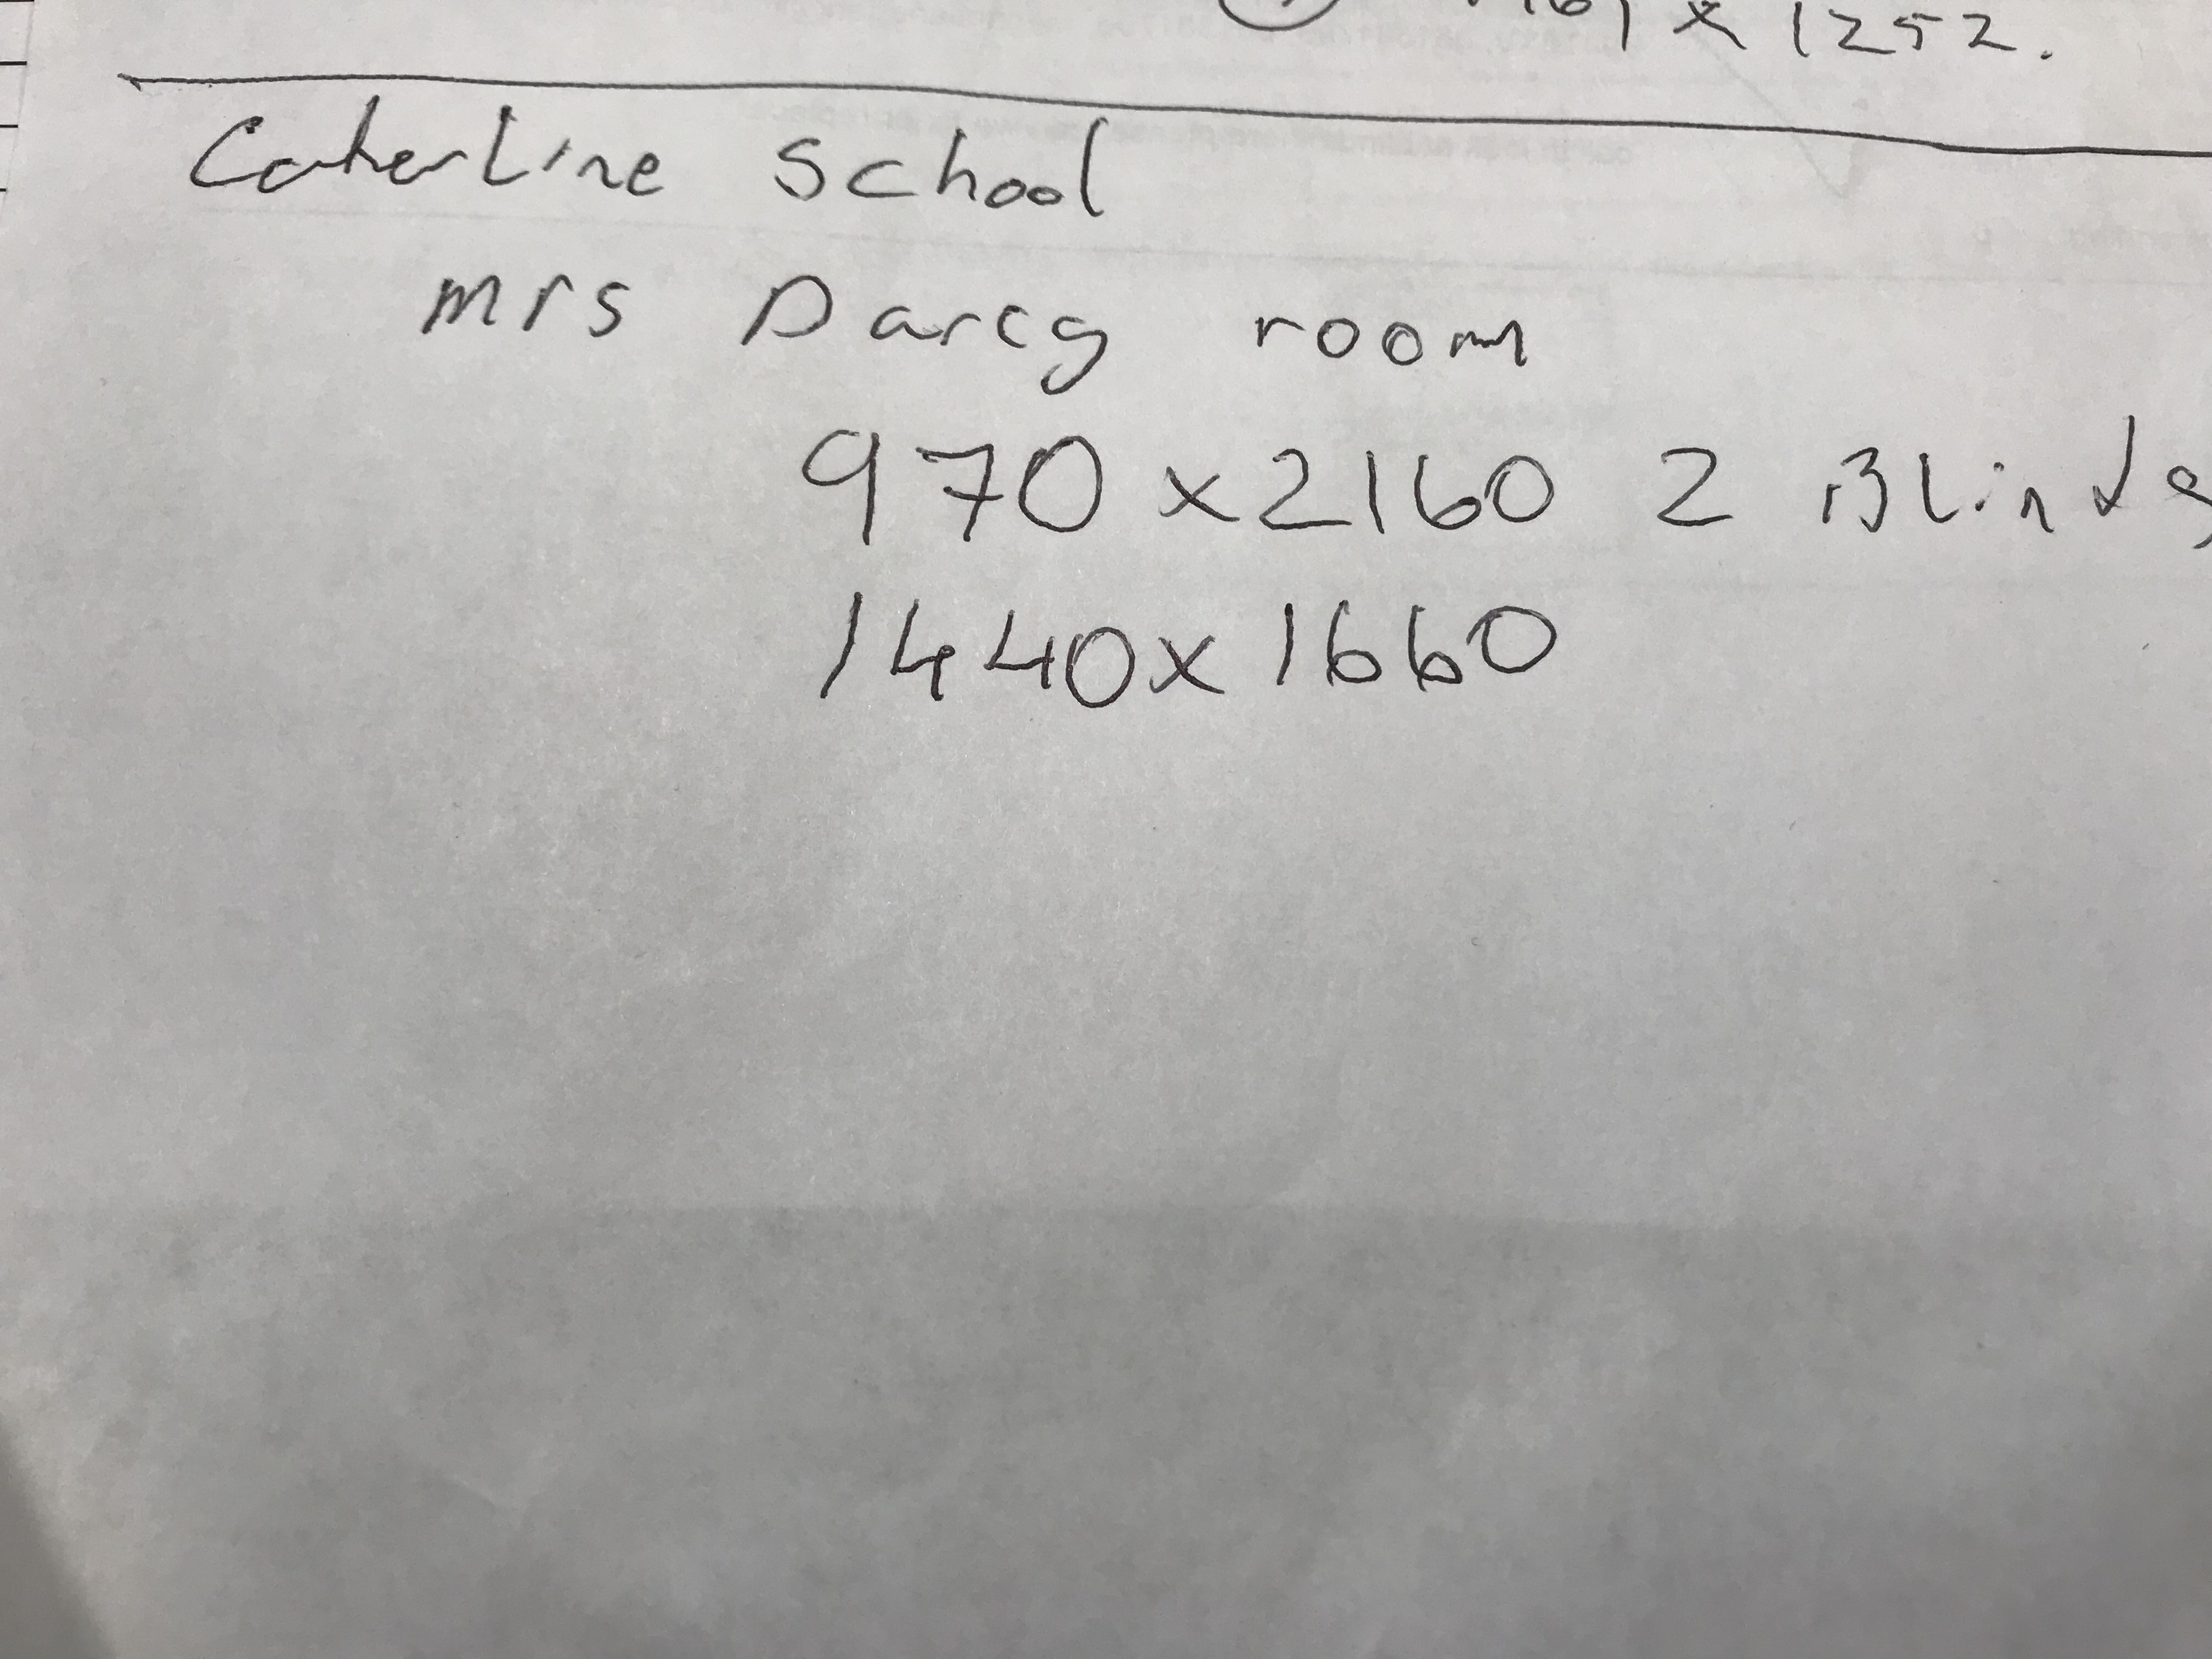 x 1252.
Caterline School
mrs Darcy room
970 x 2160 2 Blinds
1440 x 1660